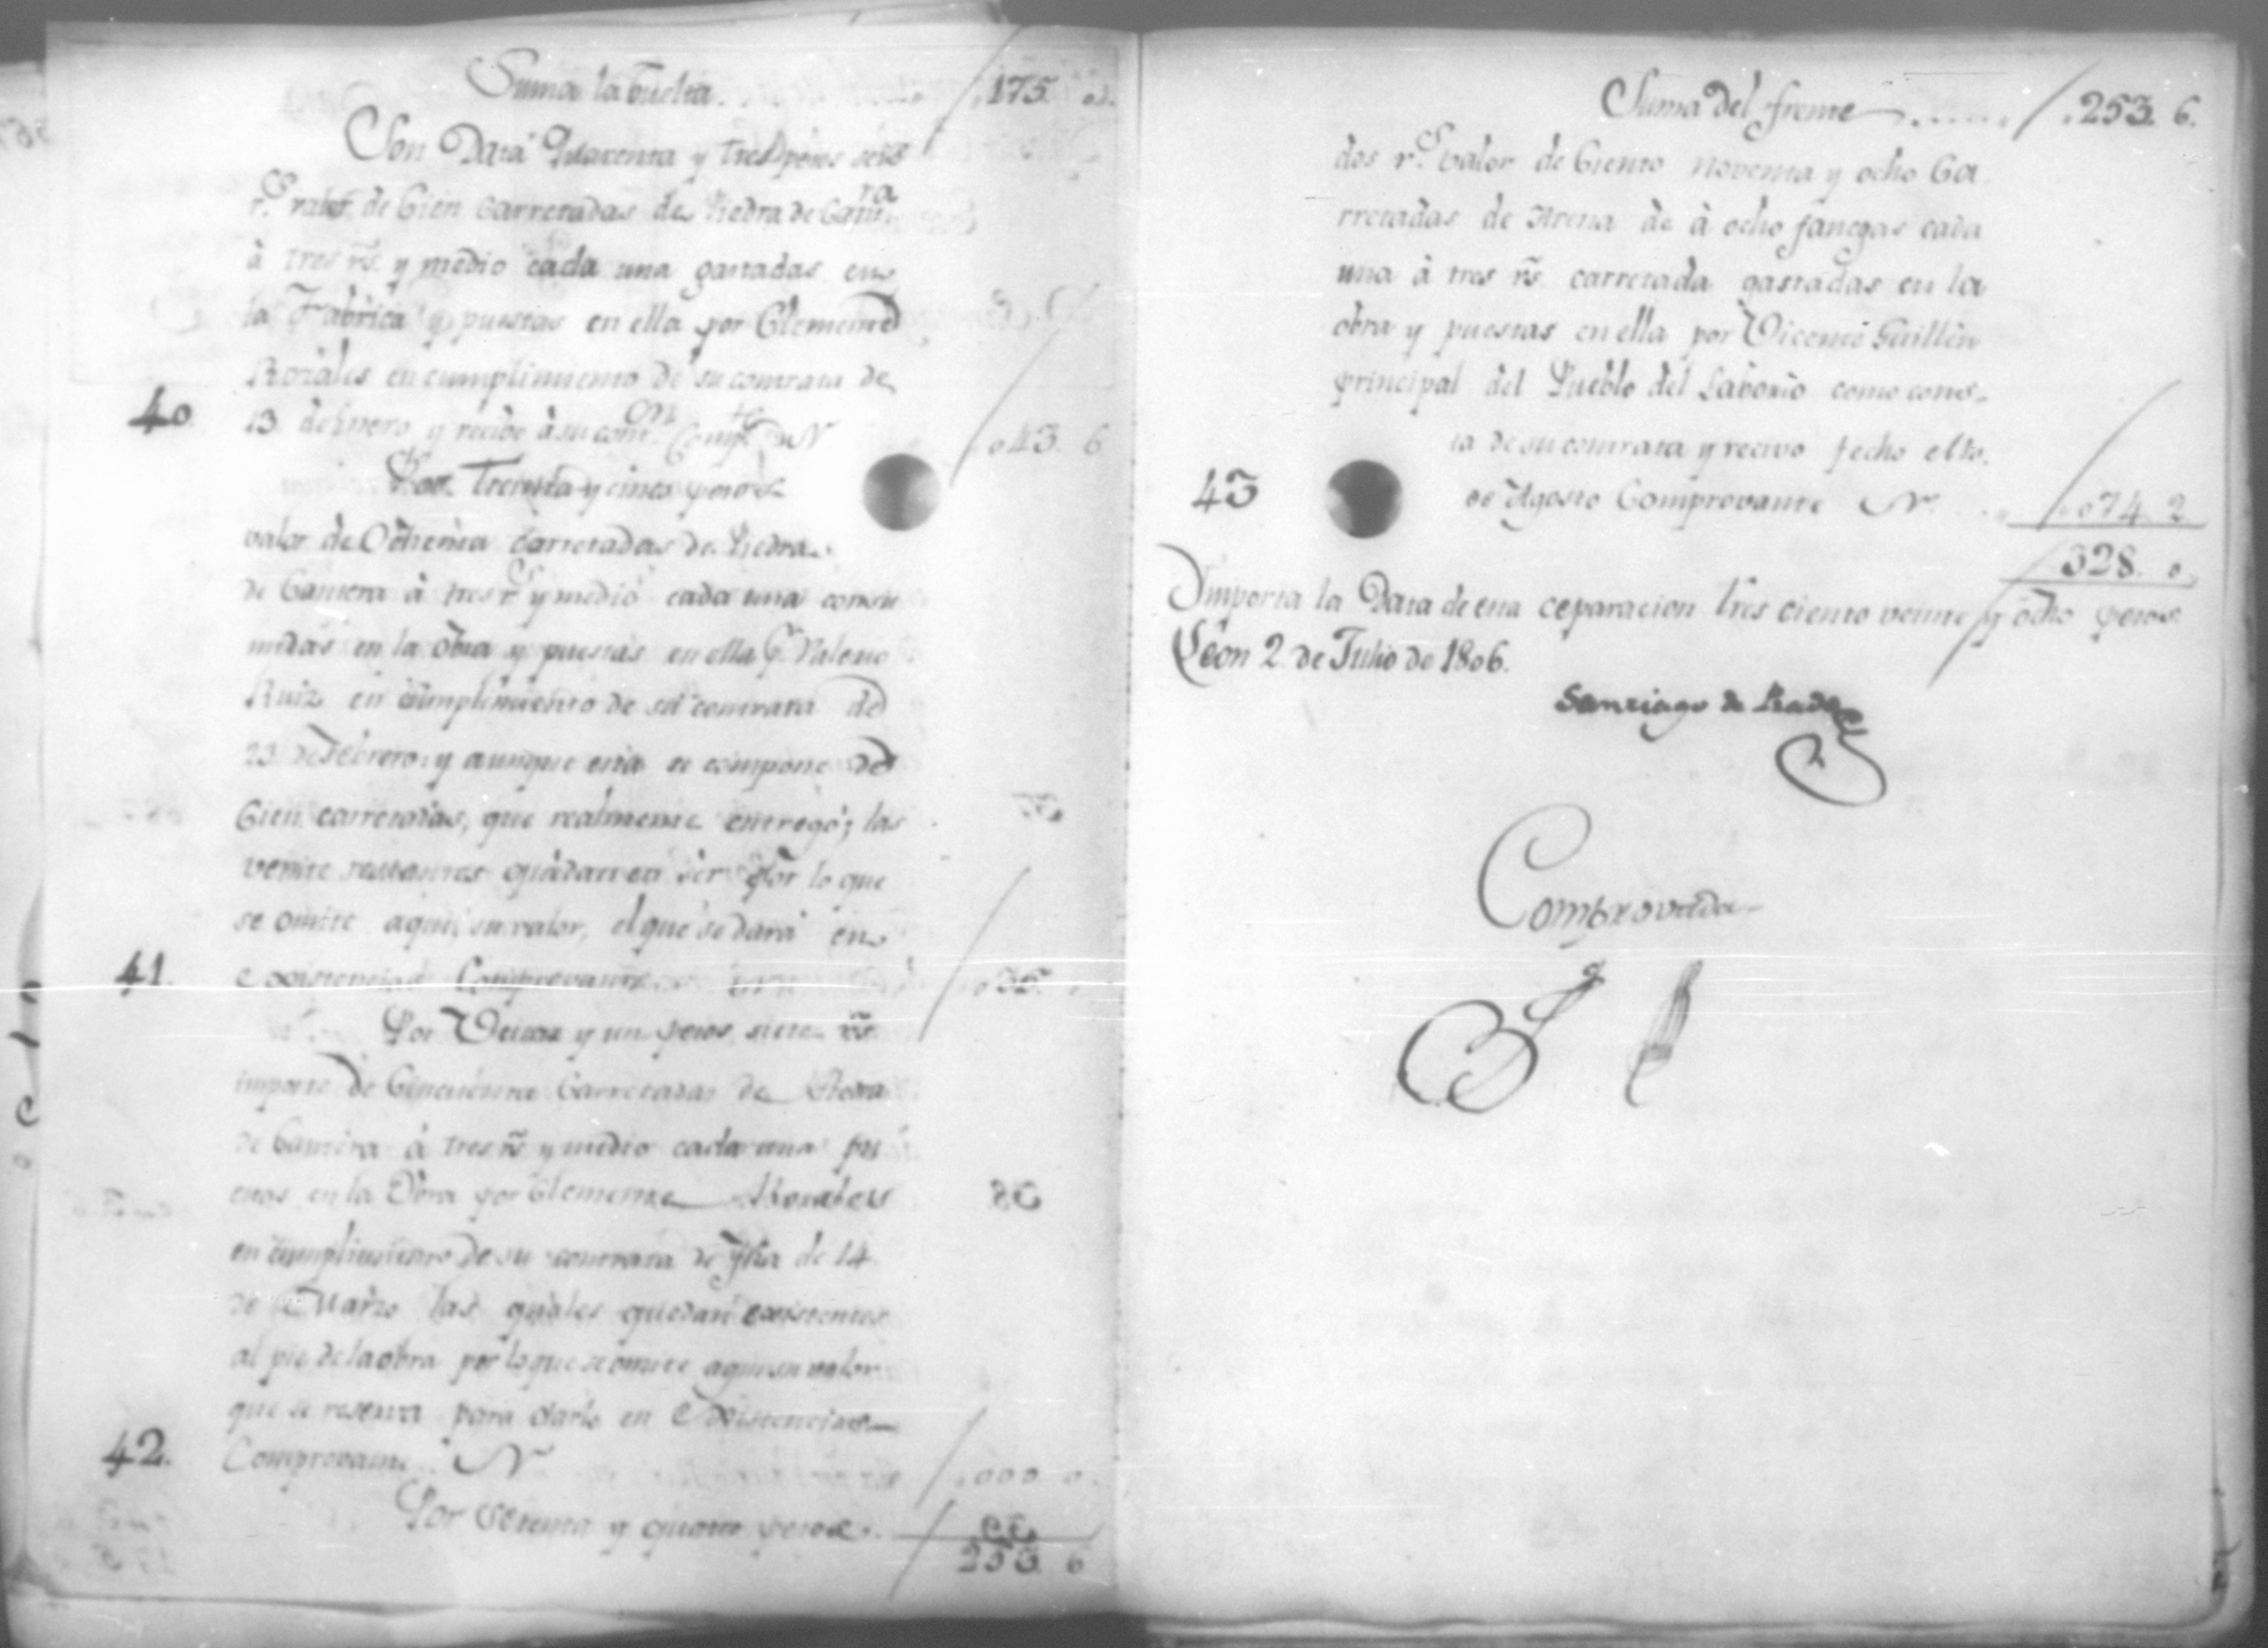 Suma la buelta. 175. o.
Son Data Quarenta y tres pesos seis
r.s valor de Cien carretadas de Piedra de Cant.ra
à tres r.s y medio cada una gastadas en
la Fabrica y puestas en ella por Clemente
Rosales en cumplimiento de su contrata de
40 13 de Enero y recibo à su cont.on Comp.te N o43. 6
Por Treinta y cinco pesos
valor de Ochenta carretadas de Piedra
de Cantera à tres r.s y medio cada una consu
midas en la obra y puestas en ella p.r Valerio
Ruiz en cumplimiento de su contrata de
23 de Febrero: y aunque esta se compone de
Cien carretadas, que realmente entregó; las
veinte restantes quedan en ser por lo que
se omite aqui su valor, el que se dará en
41. existencias Comprovante o35.
Por Veinte y un pesos siete r.s
importe de Cincuenta Carretadas de Piedra
de Cantera à tres r.s y medio cada una pu
estas en la Obra por Clemente Rosales
en cumplimiento de su contrata de fha de 14
de Marzo las quales quedan existentes
al pie de la obra por lo que se omite aqui su valor
que se reserva para darlo en Existencias
42. Comprovante N .ooo o.
Por setenta y quatro pesos.
253. 6
Suma del frente ...... .253. 6.
dos r.s valor de Ciento noventa y ocho Ca
rretadas de Arena de à ocho fanegas cada
una à tres r.s carretada gastadas en la
obra y puestas en ella por Vicente Guillen
principal del Pueblo del Laborio como cons-
ta de su contrata y recivo fecho el 1o.
43 de Agosto Comprovante N o74. 2
328. o.
Importa la Data de esta ceparacion tres ciento veinte y ocho pesos
Leon 2 de Julio de 1806.
Santiago de
Comprovada